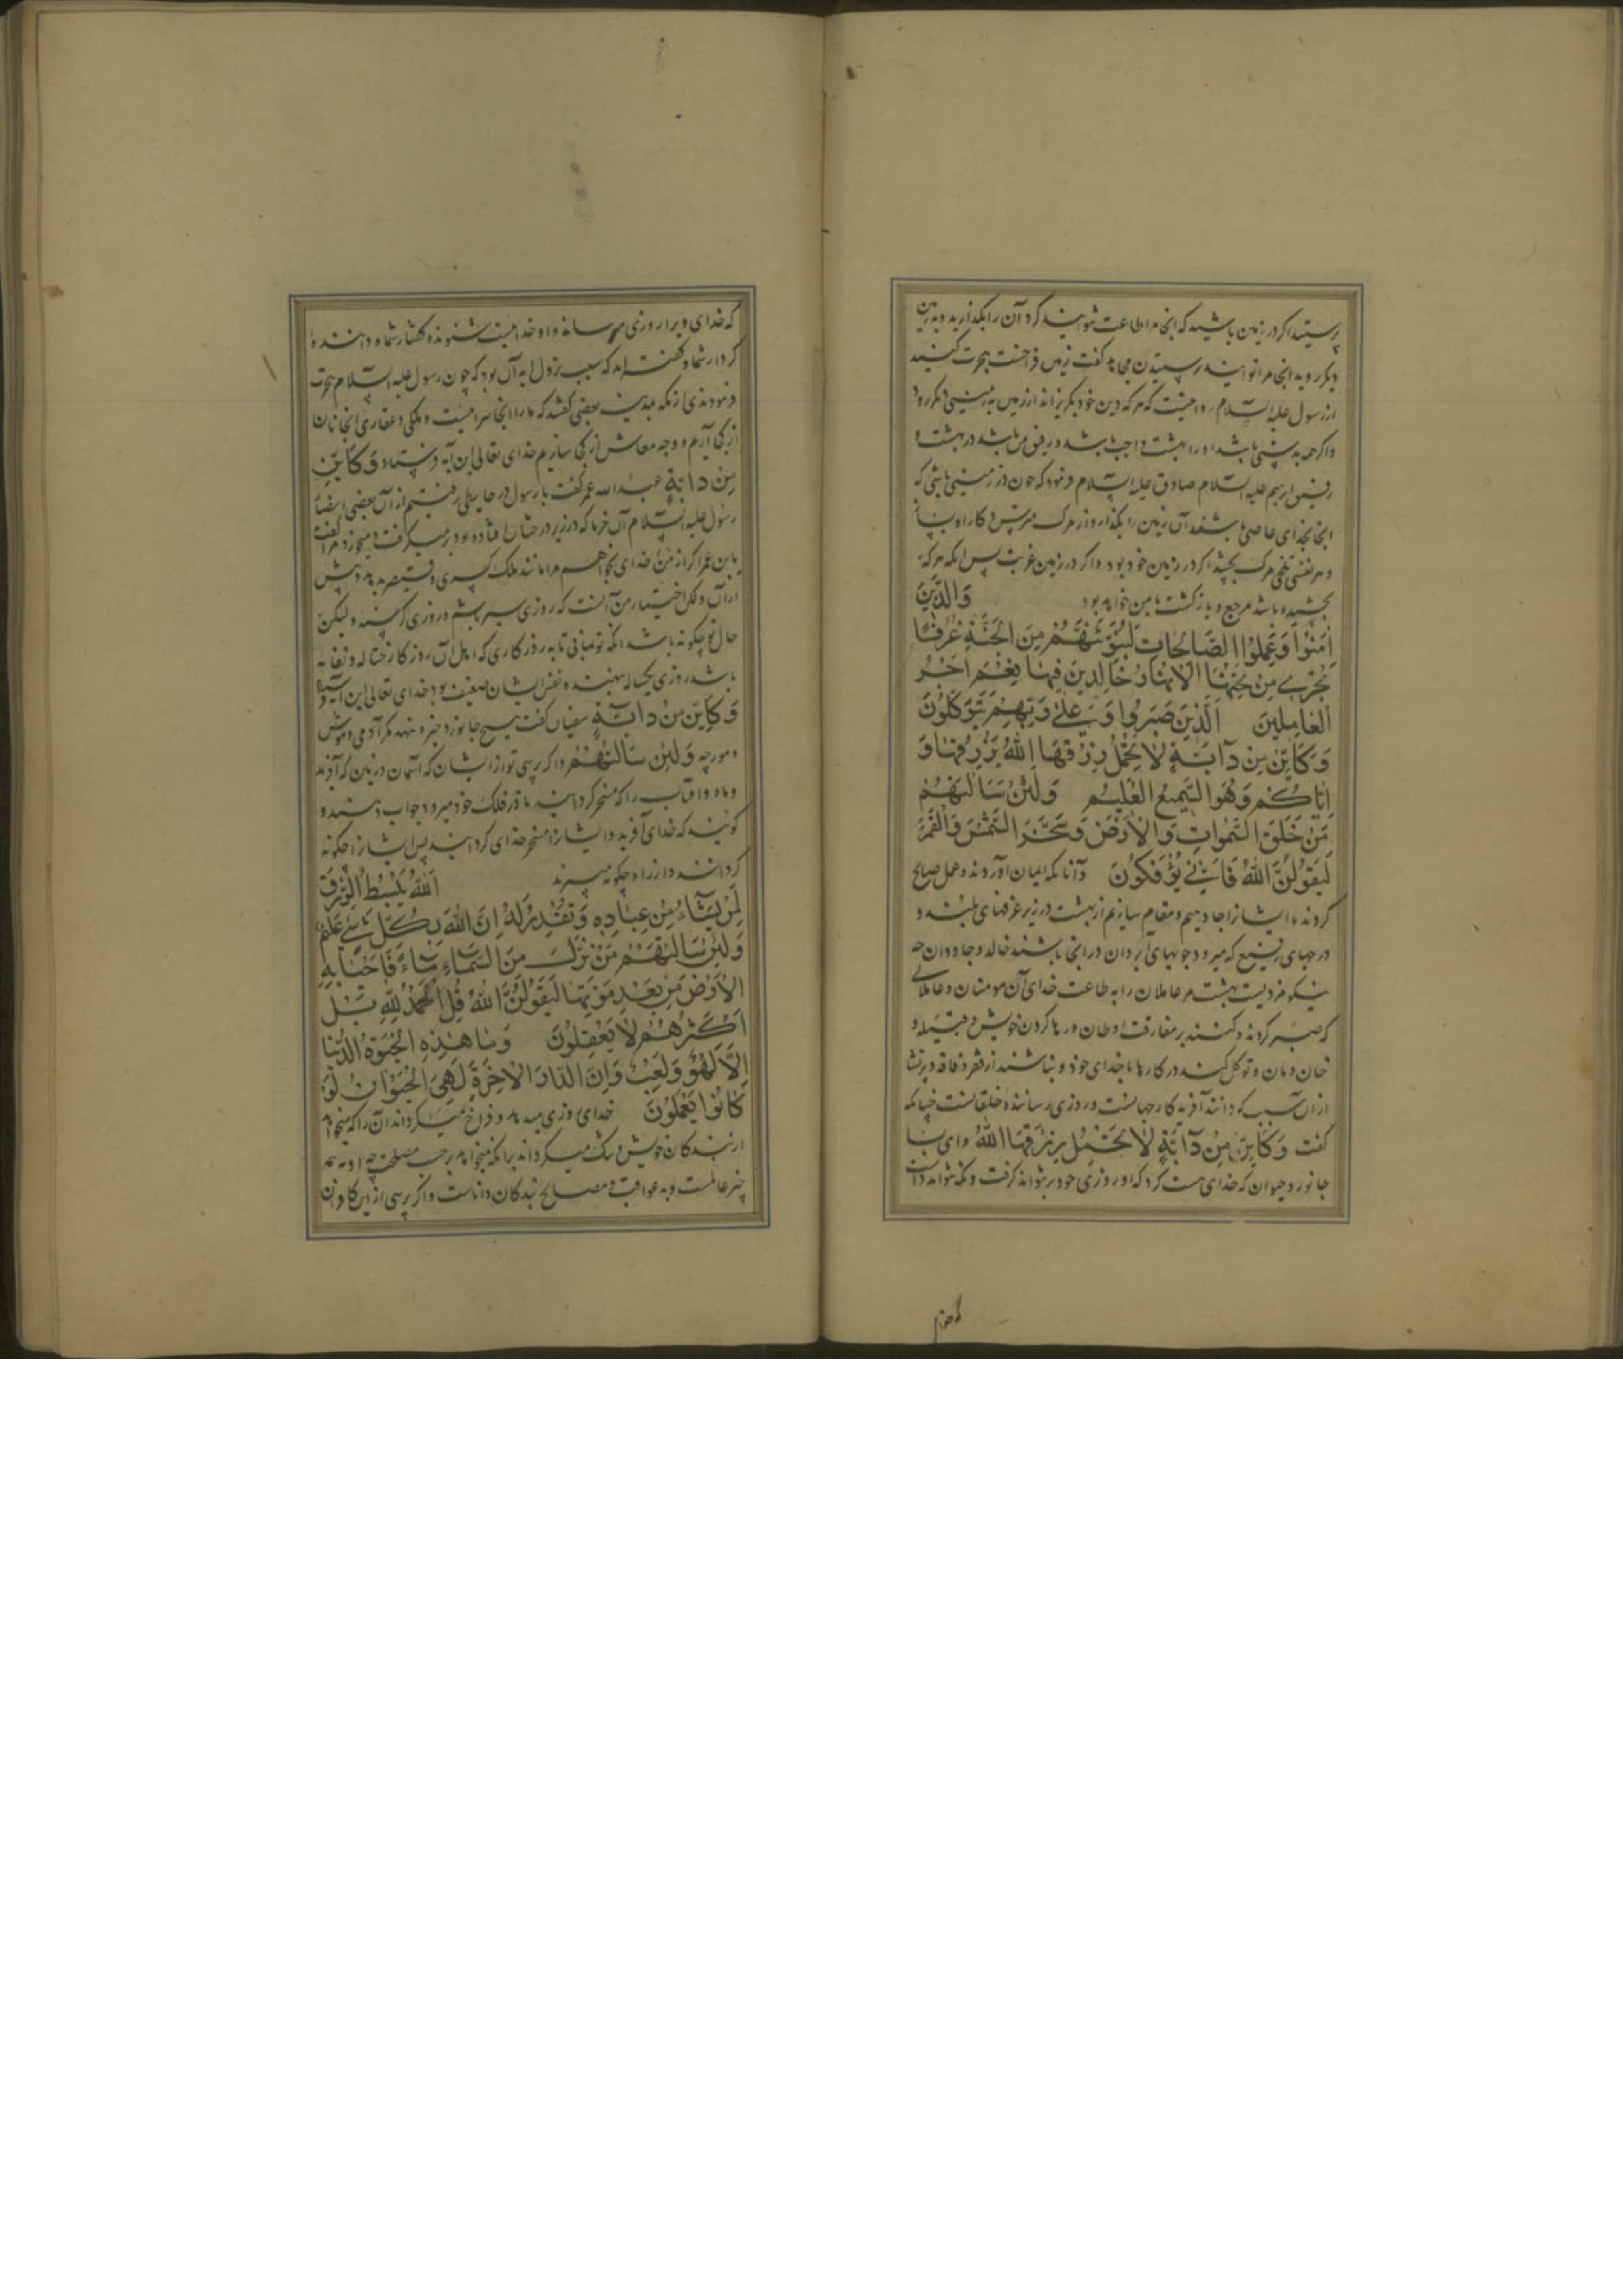 پرستید اگر در زمین باشید که آنجا مرا طاعت نتوانید کرد آن را بگذارید و بزمین
دیگر روید آنجا مرا توانید پرستیدن مجاهد گفت زمین من فراخست هجرت کنید
از رسول علیه السلام روایتست که هر که دین خود بگریزاند از زمین به زمینی دیگر رود
واگر همه بدستی باشد او را بهشت واجب باشد و رفیق من باشد در بهشت و
رفیق ابرهیم علیه السلام صادق علیه السلام فرمود که چون در زمینی باشی که
آنجا بخدای عاصی باشند آن زمین را بگذار و از مرگ مترس و کار او بساز
و هر نفسی تلخی مرگ بچشد اگر در زمین خود بود و اگر در زمین غربت پس آنکه مرگ
چشیده باشد مرجع و بازگشت با من خواهد بود وَالَّذِينَ
اٰمَنُوا وَعَمِلُوا الصَّالِحَاتِ لَنُبَوِّئَنَّهُمْ مِنَ الْجَنَّةِ غُرَفًا
تَجْرِي مِنْ تَحْتِهَا الْاَنْهَارُ خَالِدِينَ فِيهَا نِعْمَ اَجْرُ
الْعَامِلِينَ اَلَّذِينَ صَبَرُوا وَعَلٰى رَبِّهِمْ يَتَوَكَّلُونَ
وَكَاَيِّنْ مِنْ دَآبَّةٍ لَا تَحْمِلُ رِزْقَهَا اللّٰهُ يَرْزُقُهَا وَ
اِيَّاكُمْ وَهُوَ السَّمِيعُ الْعَلِيمُ وَلَئِنْ سَاَلْتَهُمْ
مَنْ خَلَقَ السَّمٰوَاتِ وَالْاَرْضَ وَسَخَّرَ الشَّمْسَ وَالْقَمَرَ
لَيَقُولُنَّ اللّٰهُ فَاَنّٰى يُؤْفَكُونَ و آنانکه ایمان آوردند و عمل صالح
کردند ما ایشان را جا دهیم و مقام سازیم از بهشت در زیر غرفهای بلند و
درجهای رفیع که میرود جویهای آب روان در آنجا باشند خالد و جاودان چه
نیکو مزدیست بهشت مر عاملان را به طاعت خدای آن مومنان و عاملانی
که صبر کردند و کنند بر مفارقت اوطان و رها کردن خویش و قبیله و
خان و مان و توکل کنند در کارها با خدای خود و نباشند از فقر و فاقه
از آن سبب که دانند آفریدگار جهانست و روزی رسانندهٔ خلقانست چنانکه
گفت وَكَاَيِّنْ مِنْ دَآبَّةٍ لَا تَحْمِلُ رِزْقَهَا اللّٰهُ و ای بسا
جانور و حیوان که خدای هست کرد که او روزی خود بر نتواند گرفت و نگه نتواند داشت
که خدای
که خدای ویرا روزی میرساند و او خداییست شنونده گفتار شما و دانندهٔ
کردار شما و گفته اند که سبب نزول آیه آن بود که چون رسول علیه السلام هجرت
فرمودند از مکه بمدینه بعضی گفتند که ما را آنجا سرا نیست و ملکی و عقاری آنجا نان
از کجا آریم و وجه معاش از کجا سازیم خدای تعالی این آیه فرستاد وَكَاَيِّنْ
مِنْ دَابَّةٍ عبد الله عمر گفت با رسول در حایطی رفتیم از آن بعضی انصار
رسول علیه السلام آن خرما که در زیر درختان افتاده بود بر میگرفت و میخورد مرا گفت
یابن عمر اگر از من خدای بخواهم مرا مانند ملک کسری و قیصر بدهد و بیش
از آن ولکن اختیار من آنست که روزی سیر باشم و روزی گرسنه و لیکن
حال تو چگونه باشد آنکه تو بمانی تا به روزگاری که اهل آن روزگار
باشد روزی یکساله بنهند و نفس ایشان ضعیف بود خدای تعالی این آیه فرستاد
وَكَاَيِّنْ مِنْ دَابَّةٍ سفیان گفت هیچ جانور ذخیره ننهد مگر آدمی و موش
و مورچه وَلَئِنْ سَاَلْتَهُمْ و اگر پرسی تو از ایشان که آسمان و زمین که آفرید
و ماه و آفتاب را که مسخر گردانید تا در فلک خود میرود جواب دهند و
گویند که خدای آفرید و ایشان را مسخر خدای گردانید پس ایشان را چگونه
گردانند و از راه چگونه میبرند اَللّٰهُ يَبْسُطُ الرِّزْقَ
لِمَنْ يَشَآءُ مِنْ عِبَادِهِ وَيَقْدِرُ لَهُ اِنَّ اللّٰهَ بِكُلِّ شَيْءٍ عَلِيمٌ
وَلَئِنْ سَاَلْتَهُمْ مَنْ نَزَّلَ مِنَ السَّمَآءِ مَآءً فَاَحْيَا بِهِ
الْاَرْضَ مِنْ بَعْدِ مَوْتِهَا لَيَقُولُنَّ اللّٰهُ قُلِ الْحَمْدُ لِلّٰهِ بَلْ
اَكْثَرُهُمْ لَا يَعْقِلُونَ وَمَا هٰذِهِ الْحَيٰوةُ الدُّنْيَا
اِلَّا لَهْوٌ وَلَعِبٌ وَاِنَّ الدَّارَ الْاٰخِرَةَ لَهِيَ الْحَيَوَانُ لَوْ
كَانُوا يَعْلَمُونَ خدای روزی میدهد و فراخ میگرداند آن را که میخواهد
از بندگان خویش و تنگ میگرداند بر آنکه میخواهد بر حسب مصلحت چه او به همه
چیز عالمست و به عواقب و مصالح بندگان داناست و اگر پرسی از این کافران